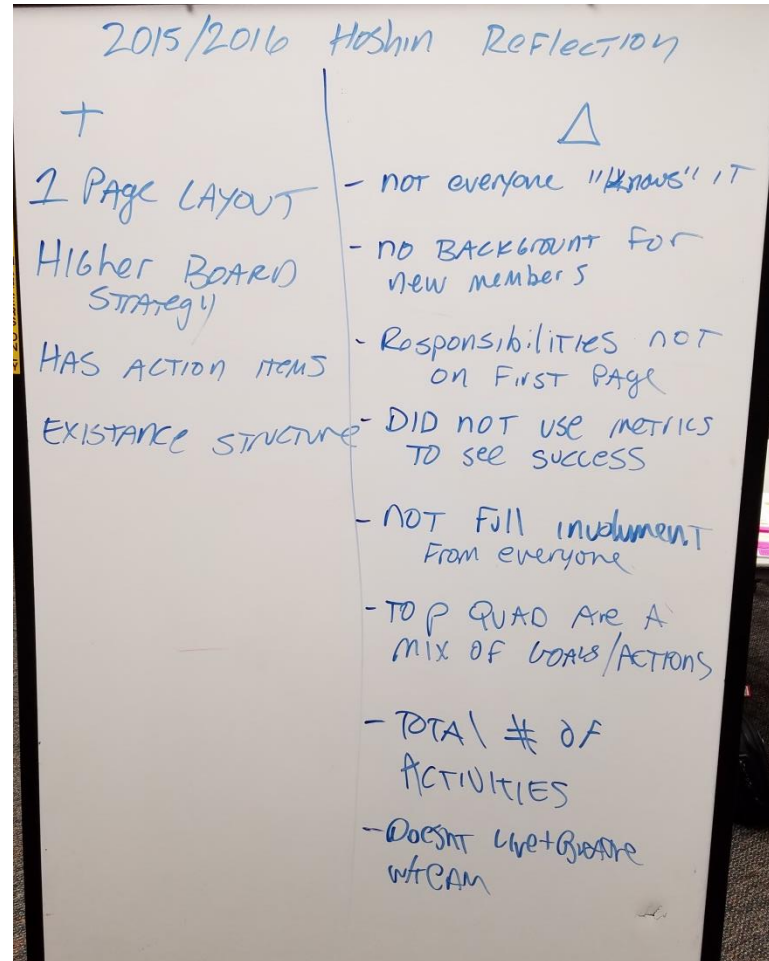 2015/2016 Hoshin Reflection
+
1 PAge LAYOUT
HIGher BOARD
STrATegy
HAS ACTION ITEMS
EXISTANCe STrUCTUre
△
- not everyone "Knows" IT
- no BACKGrounT For
new members
- Responsibilities noT
on First PAge
- DID noT use metrics
TO see success
- NOT Full involvment
From everyone
- TOP QUAD Are A
MIX OF GOALS/ACTIONS
- TOTAl # OF
ACTIVITIES
- DoesnT Live + Breathe